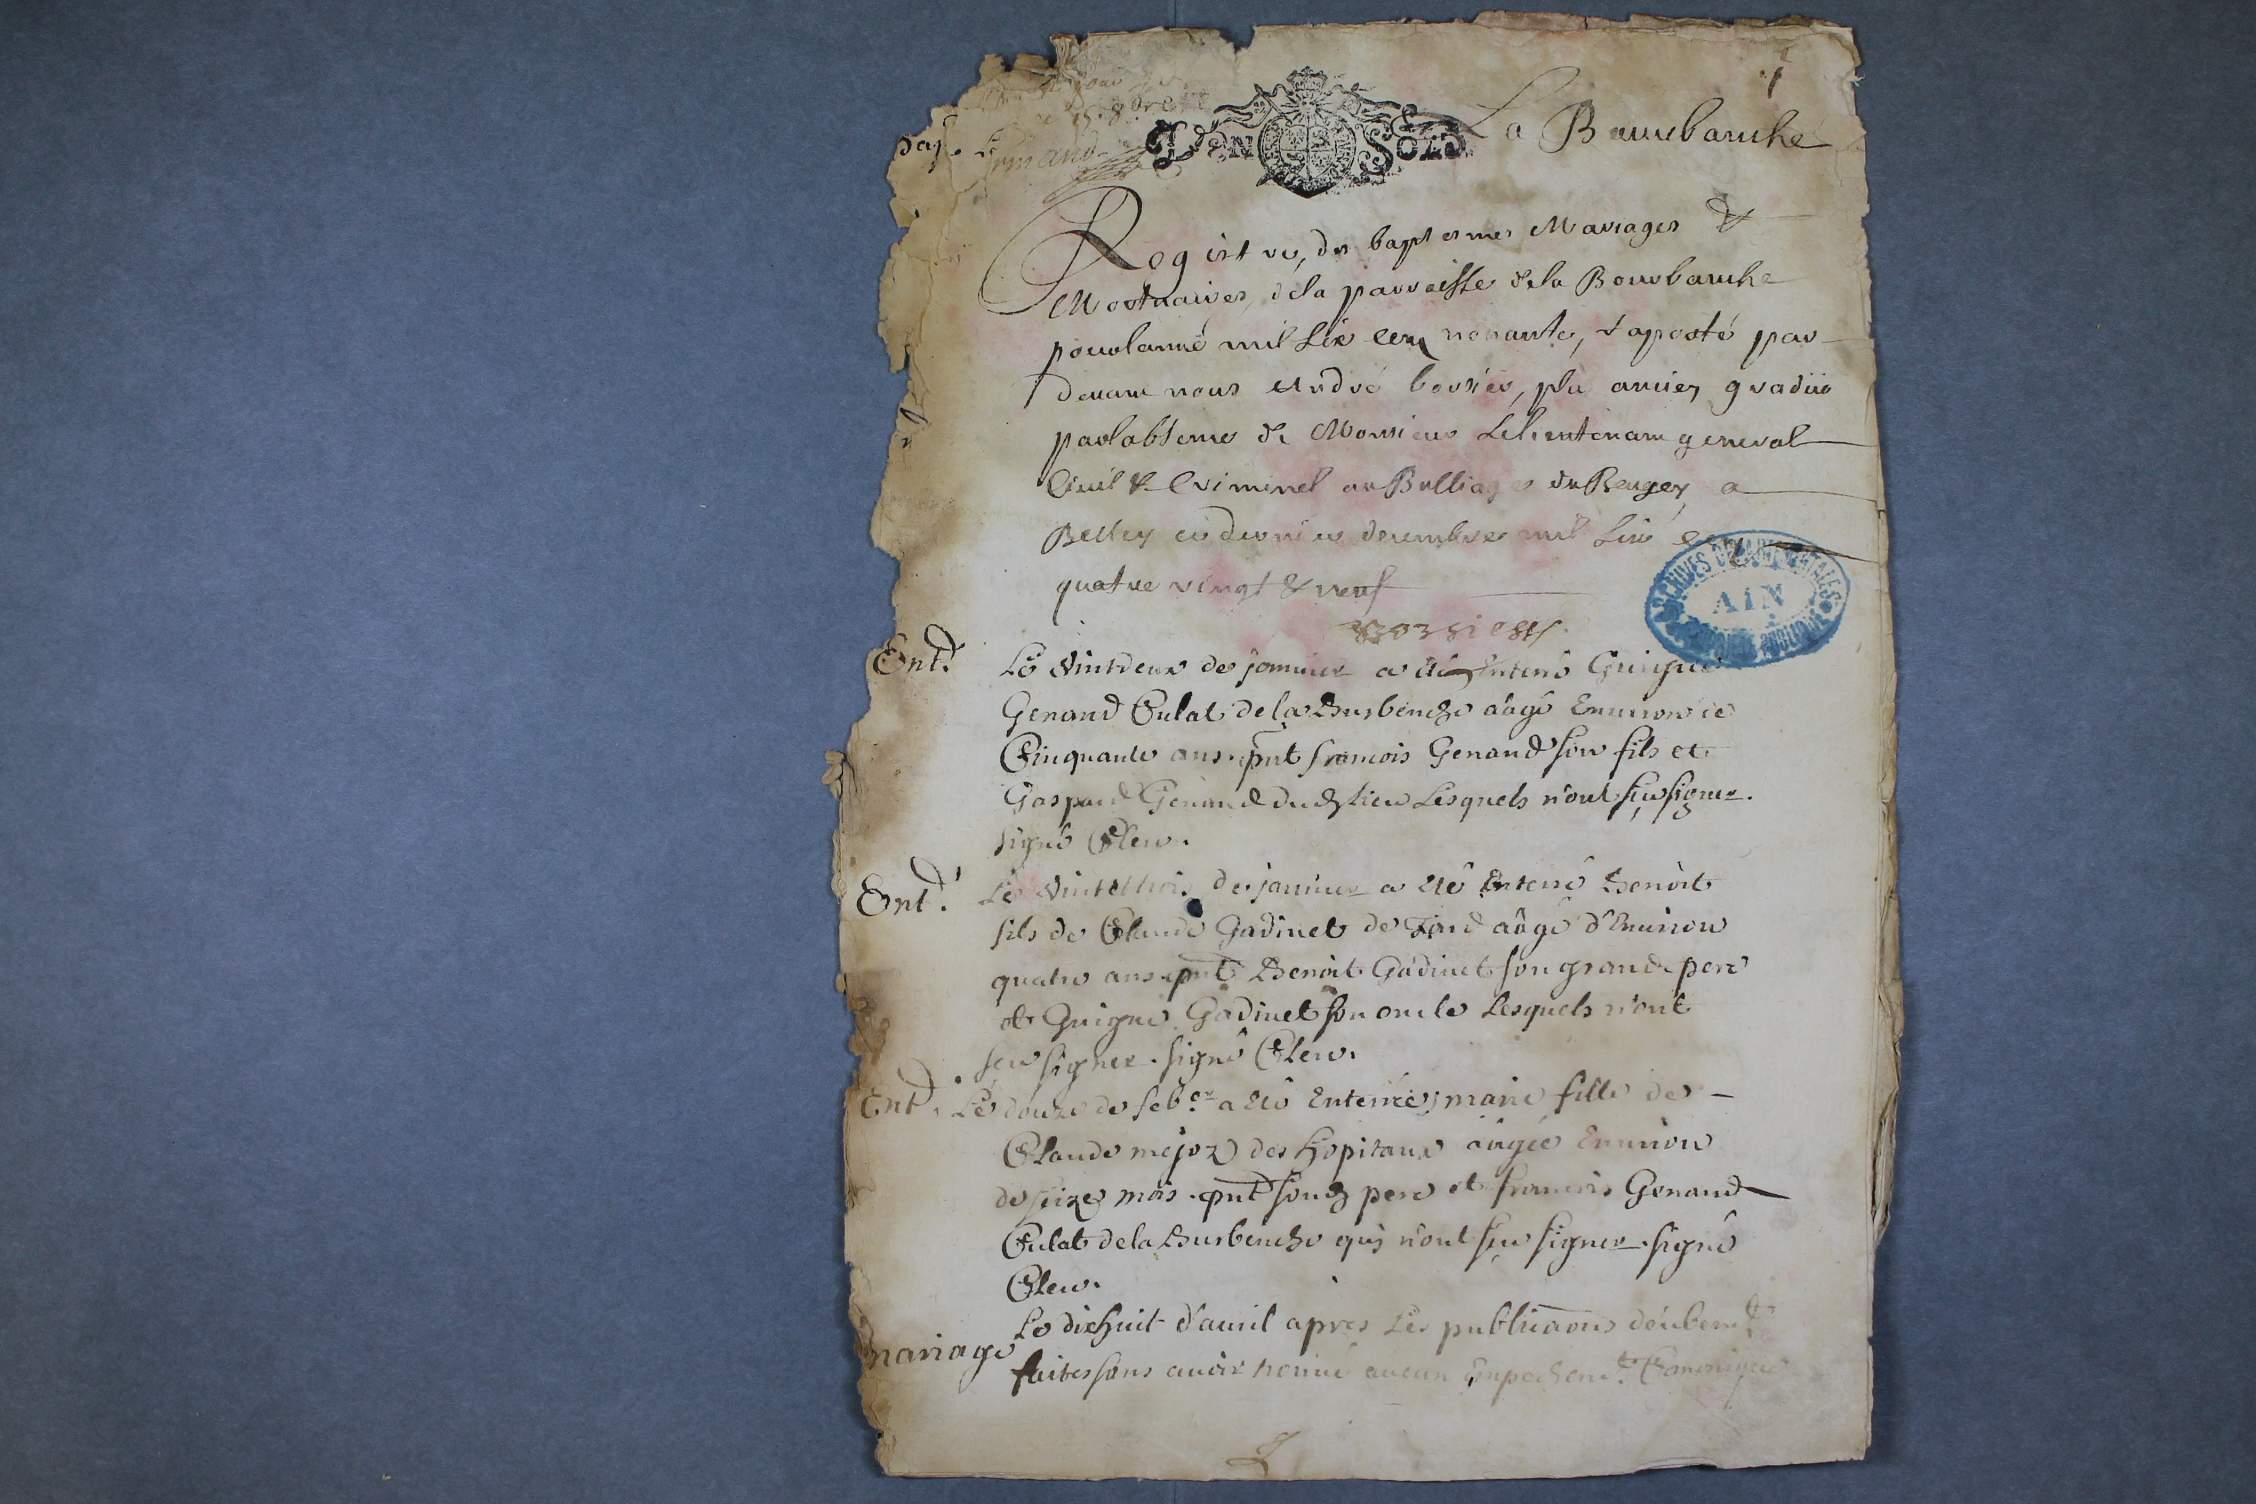 1
La Bourbanche
VN SOLS
Registre, des baptesmes Mariages &
Mortuaires, dela parroisse dela Bourbanche
pourlanné mil six cent nonante, & aporté par
devant nous André borsier, plu ancien gradué
parlabsence de Monsieur Lelieutenant general
Civil & Criminel au Balliage du Beugey a
Belley ce dernier decembre mil six cent
quatre vingt & neuf
ARCHIVES DEPARTEMENTALES
AIN
Ent.
Le vintdeux de janvier a été Enterré Guigue
Genand Culat de la Burbenche aâgé Environ de
Cinquante ans. pnt francois Genand son fils et
Gaspard Genand dud lieu Lesquels n'ont sçu signer.
signé Clerc.
Ent.
Le vintetrois de janvier a été Enterré Benoit
fils de Claude Gadinet de aâgé d'Environ
quatre ans. pnt Benoit Gadinet son grand pere
et Guigue Gadinet son oncle Lesquels n'ont
seu signer. signé Clerc.
Ent.
Le douze de feb.er a été Enterrée marie fille de
Claude mejoz des hopitaux aâgée Environ
de seize mois. pnt sond pere et francois Genand
Culat dela Burbenche qui n'ont sçu signer. signé
Clerc.
mariage
Le dixhuit d'avril apres Les publicaons deubem.t
faites sans avoir trouvé aucun Empechem.t Canonique